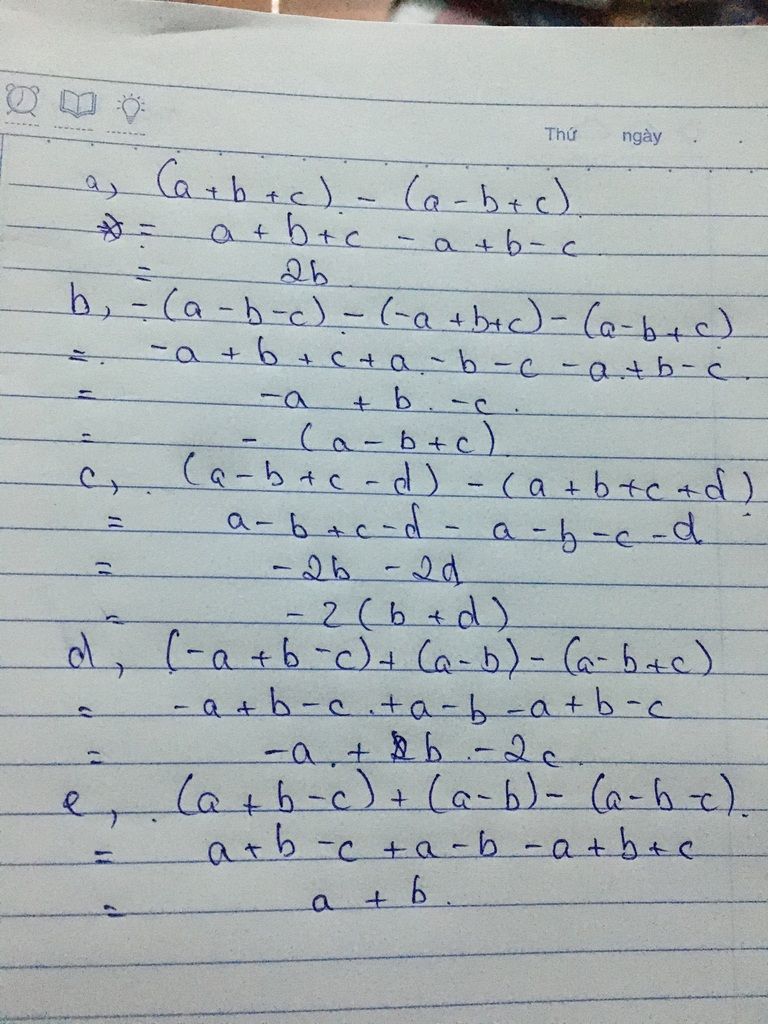 Thứ ngày
a, (a+b+c) - (a-b+c)
= a+b+c -a+b-c
= 2b
b, -(a-b-c) - (-a+b+c) - (a-b+c)
= -a+b+c+a-b-c-a+b-c
= -a +b -c
= -(a-b+c)
c, (a-b+c-d) - (a+b+c+d)
= a-b+c-d-a-b-c-d
= -2b -2d
= -2(b+d)
d, (-a+b-c)+(a-b)-(a-b+c)
= -a+b-c+a-b-a+b-c
= -a + b -2c
e, (a+b-c)+(a-b)-(a-b-c)
= a+b-c+a-b-a+b+c
= a+b